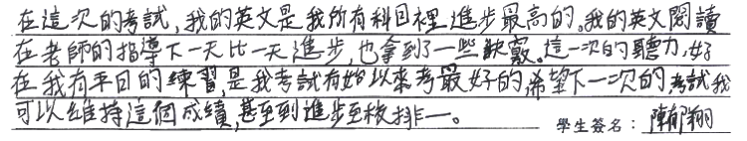 在這次的考試,我的英文是我所有科目裡進步最高的。我的英文閱讀
在老師的指導下一天比一天進步,也拿到了一些訣竅。這一次的聽力,好
在我有平日的練習,是我考試有始以來考最好的,希望下一次的,考試我
可以維持這個成績,甚至到進步至校排一。 學生簽名:陳郁翔